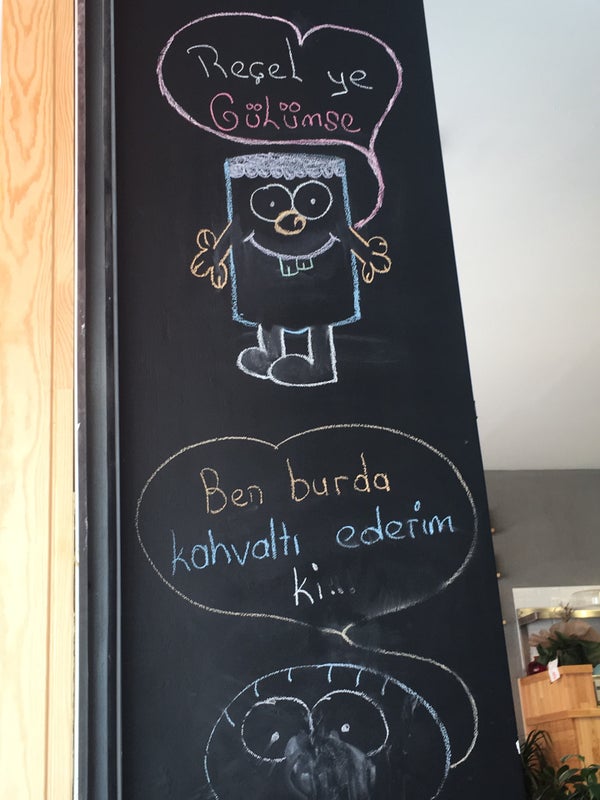 Reçel ye
Gülümse
Ben burda
kahvaltı ederim
ki...